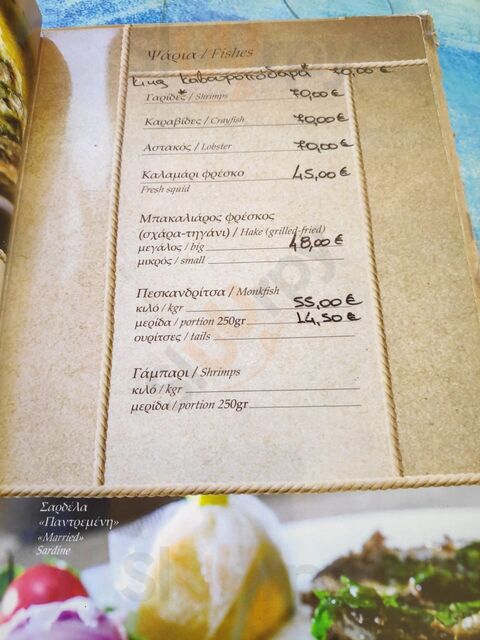 Ψάρια / Fishes
King καβουροπόδαρα* 70,00 €
Γαρίδες* / Shrimps 70,00 €
Καραβίδες / Crayfish 70,00 €
Αστακός / Lobster 70,00 €
Καλαμάρι φρέσκο 45,00 €
Fresh squid
Μπακαλιάρος φρέσκος
(σχάρα-τηγάνι) / Hake (grilled-fried)
μεγάλος / big 48,00 €
μικρός / small
Πεσκανδρίτσα / Monkfish
κιλό / kgr 55,00 €
μερίδα / portion 250gr 14,50 €
ουρίτσες / tails
Γάμπαρι / Shrimps
κιλό / kgr
μερίδα / portion 250gr
Σαρδέλα
«Παντρεμένη»
«Married»
Sardine